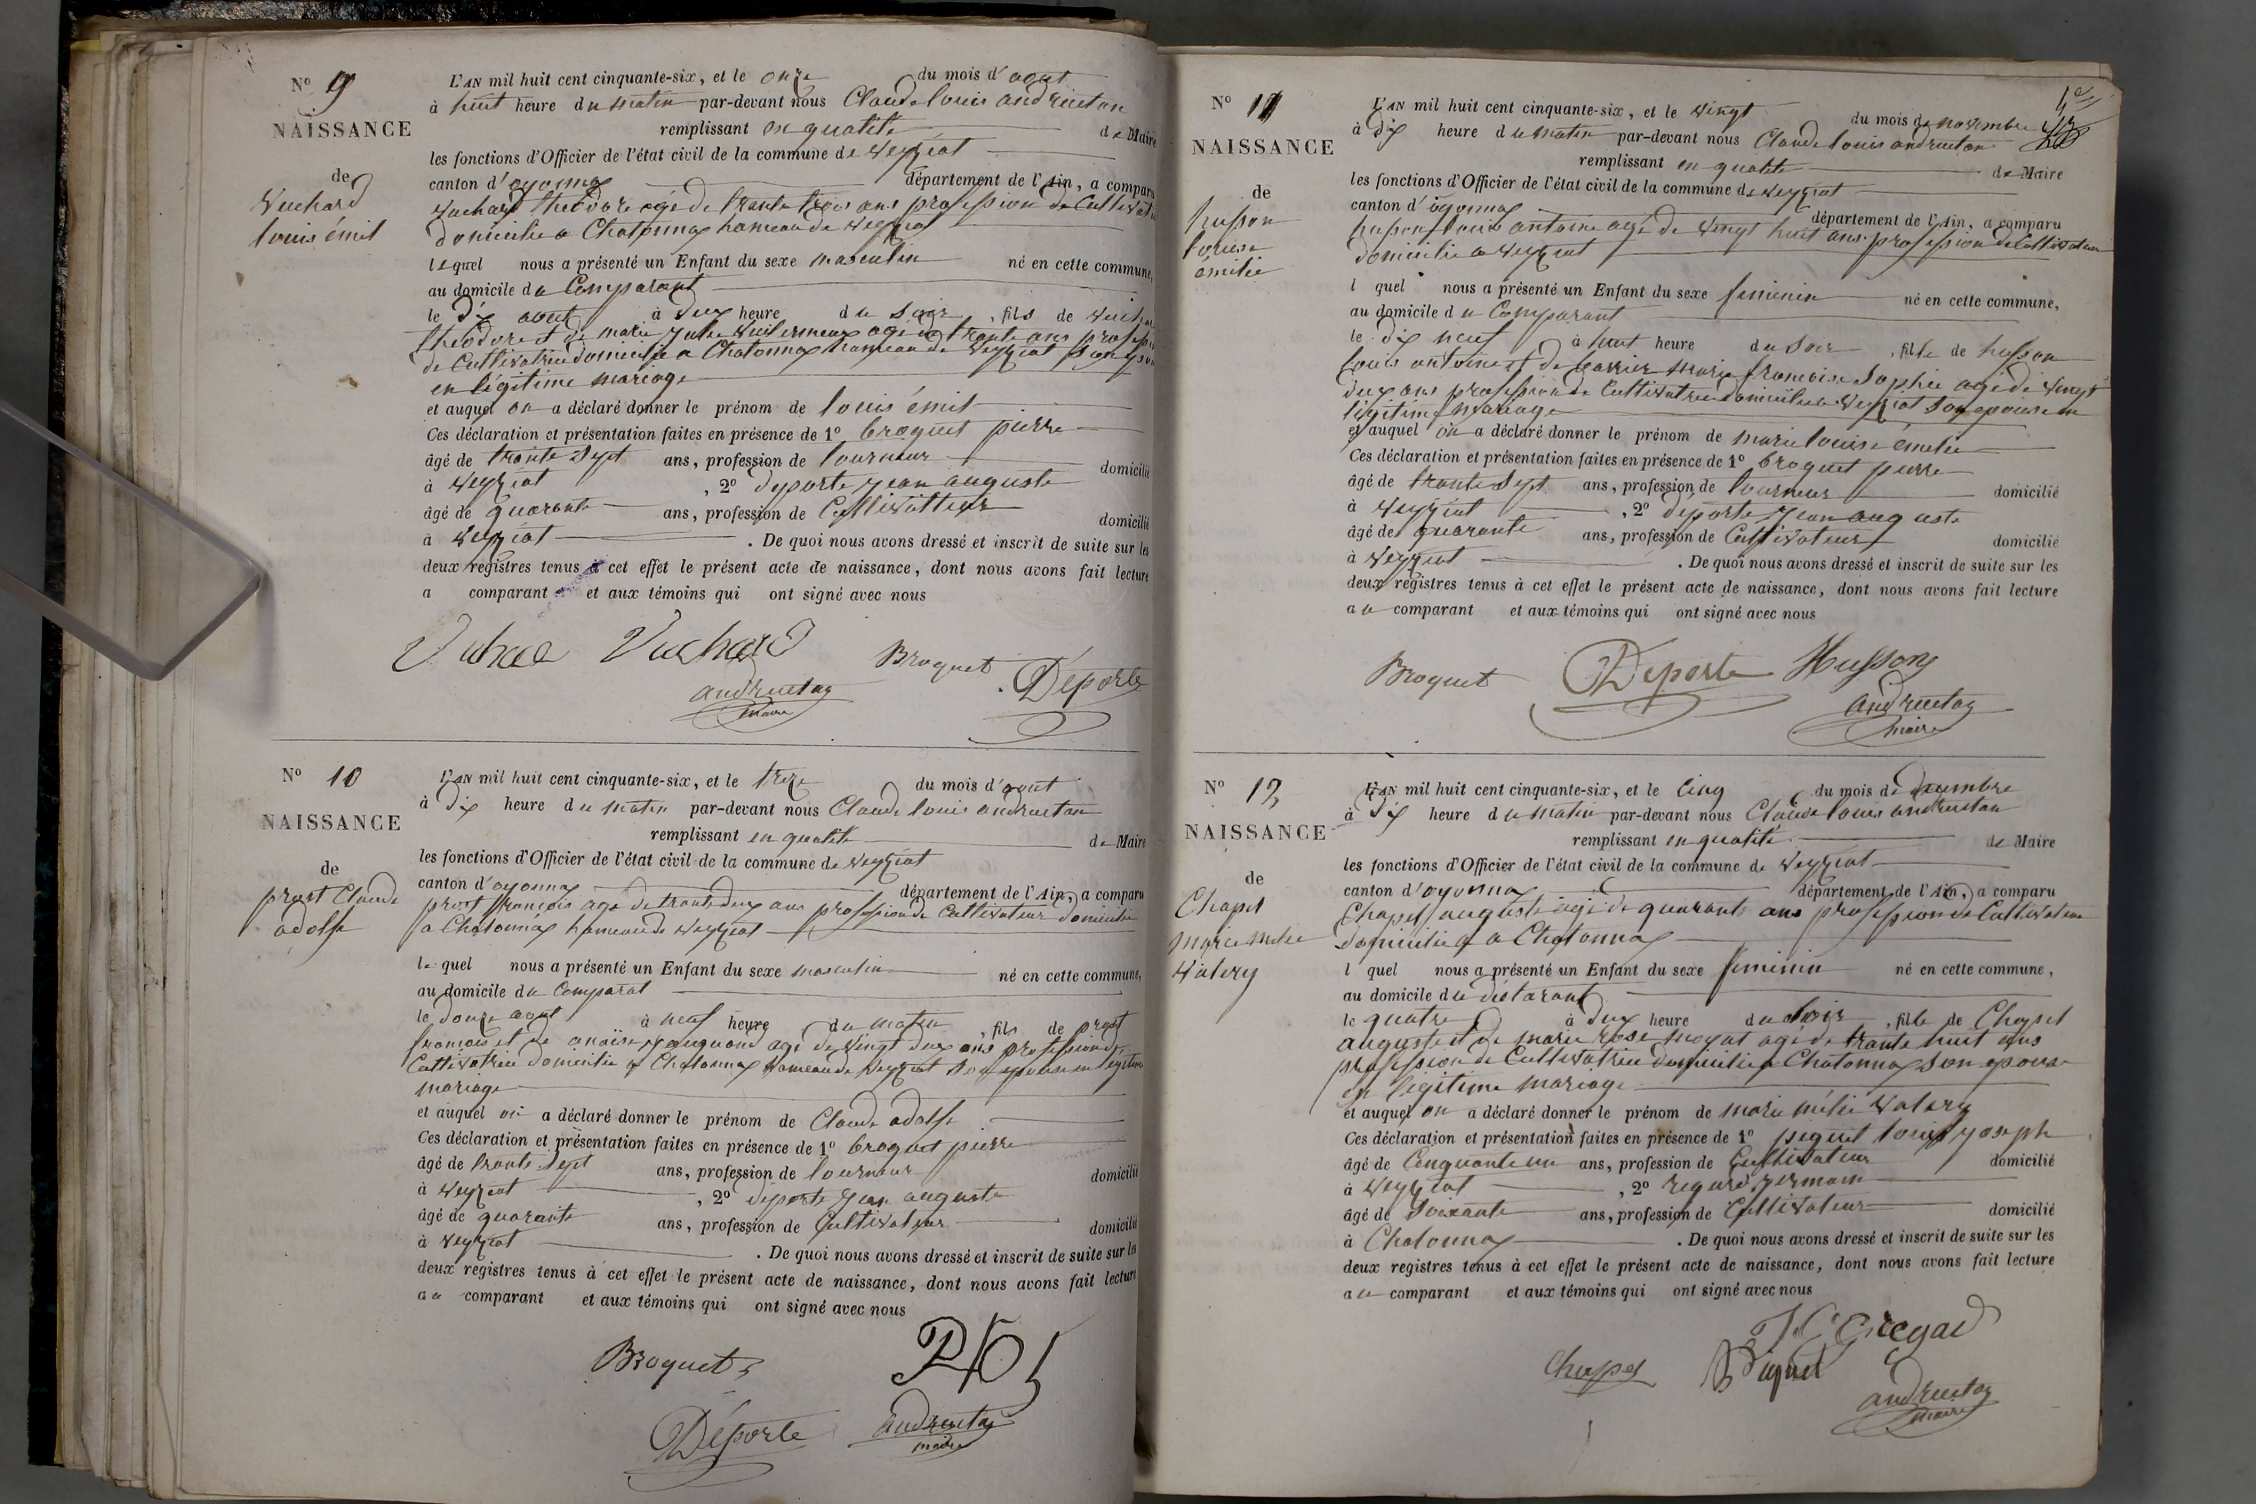 N° 9
NAISSANCE
de
Vuchard
louis émil
L'AN mil huit cent cinquante-six, et le onze du mois d'aout
à huit heure du matin par-devant nous Claude louis andruetan
remplissant en qualité de Maire
les fonctions d'Officier de l'état civil de la commune de veyziat
canton d'oyonnax département de l'Ain, a comparu
Vuchard théodore agé de trante trois ans profession de Cultivateur
domicilie a Chatonnax hameau de veyziat
lequel nous a présenté un Enfant du sexe masculin né en cette commune,
au domicile du Comparant
le dix aout à deux heure du soir, fils de Vuchard
théodore et de marie julie agé de trante ans profession
de Cultivatrice domicilie a Chatonnax hameau de veyziat
en légitime mariage
et auquel on a déclaré donner le prénom de louis émil
Ces déclaration et présentation faites en présence de 1° broquet pierre
âgé de trante sept ans, profession de tourneur domicilié
à veyziat, 2° déporte jean auguste
âgé de quarante ans, profession de Cultivatteur domicilié
à veyziat. De quoi nous avons dressé et inscrit de suite sur les
deux registres tenus à cet effet le présent acte de naissance, dont nous avons fait lecture
a comparant et aux témoins qui ont signé avec nous
Vuchard Broquet Déporte
andruetan
maire
N° 10
NAISSANCE
de
prost Claude
adolfe
L'AN mil huit cent cinquante-six, et le treze du mois d'aout
à dix heure du matin par-devant nous Claude louis andruetan
remplissant en qualité de Maire
les fonctions d'Officier de l'état civil de la commune de veyziat
canton d'oyonnax département de l'Ain, a comparu
prost françois agé de trante deux ans profession de Cultivateur domicilie
a Chatonnax hameau de veyziat
lequel nous a présenté un Enfant du sexe masculin né en cette commune,
au domicile du Comparat
le douze aout à neuf heure du matin, fils de prost
françois et de agé de vingt deux ans profession de
Cultivatrice domicilie a Chatonnax hameau de veyziat son epouse en légitime
mariage
et auquel on a déclaré donner le prénom de Claude adolfe
Ces déclaration et présentation faites en présence de 1° broquet pierre
âgé de trante sept ans, profession de tourneur domicilié
à veyziat, 2° déporte jean auguste
âgé de quarante ans, profession de Cultivateur domicilié
à veyziat. De quoi nous avons dressé et inscrit de suite sur les
deux registres tenus à cet effet le présent acte de naissance, dont nous avons fait lecture
au comparant et aux témoins qui ont signé avec nous
Broquet
Déporte andruetan
maire
N° 11
NAISSANCE
de
husson
louise
émilie
L'AN mil huit cent cinquante-six, et le vingt du mois de novembre
à dix heure du matin par-devant nous Claude louis andruetan
remplissant en qualité de Maire
les fonctions d'Officier de l'état civil de la commune de veyziat
canton d'oyonnax département de l'Ain, a comparu
husson louis antoine agé de vingt huit ans profession de Cultivateur
domicilie a veyziat
l quel nous a présenté un Enfant du sexe feminin né en cette commune,
au domicile du Comparant
le dix neuf à huit heure du soir, fille de husson
louis antoine et de marie francoise sophie agé de vingt
deux ans profession de Cultivatrice domicilie a veyziat son epouse en
légitime mariage
et auquel on a déclaré donner le prénom de marie louise émilie
Ces déclaration et présentation faites en présence de 1° broquet pierre
âgé de trante sept ans, profession de tourneur domicilié
à veyziat, 2° déporte jean auguste
âgé de quarante ans, profession de Cultivateur domicilié
à veyziat. De quoi nous avons dressé et inscrit de suite sur les
deux registres tenus à cet effet le présent acte de naissance, dont nous avons fait lecture
au comparant et aux témoins qui ont signé avec nous
Broquet Déporte Husson
andruetan
maire
N° 12
NAISSANCE
de
Chapel
marie mélie
valery
L'AN mil huit cent cinquante-six, et le cinq du mois de decembre
à dix heure du matin par-devant nous Claude louis andruetan
remplissant en qualité de Maire
les fonctions d'Officier de l'état civil de la commune de veyziat
canton d'oyonnax département de l'Ain, a comparu
Chapel auguste agé de quarante ans profession de Cultivateur
domicilie a Chatonnax
l quel nous a présenté un Enfant du sexe feminin né en cette commune,
au domicile du déclarant
le quatre à deux heure du soir, fille de Chapel
auguste et de marie rose agé de trante huit ans
profession de Cultivatrice domicilie a Chatonnax son epouse
en légitime mariage
et auquel on a déclaré donner le prénom de marie mélie valery
Ces déclaration et présentation faites en présence de 1° piquet louis joseph
âgé de Cinquante un ans, profession de Cultivateur domicilié
à veyziat, 2° regard germain
âgé de soixante ans, profession de Cultivateur domicilié
à Chatonnax. De quoi nous avons dressé et inscrit de suite sur les
deux registres tenus à cet effet le présent acte de naissance, dont nous avons fait lecture
au comparant et aux témoins qui ont signé avec nous
Chapel Piquet
andruetan
maire